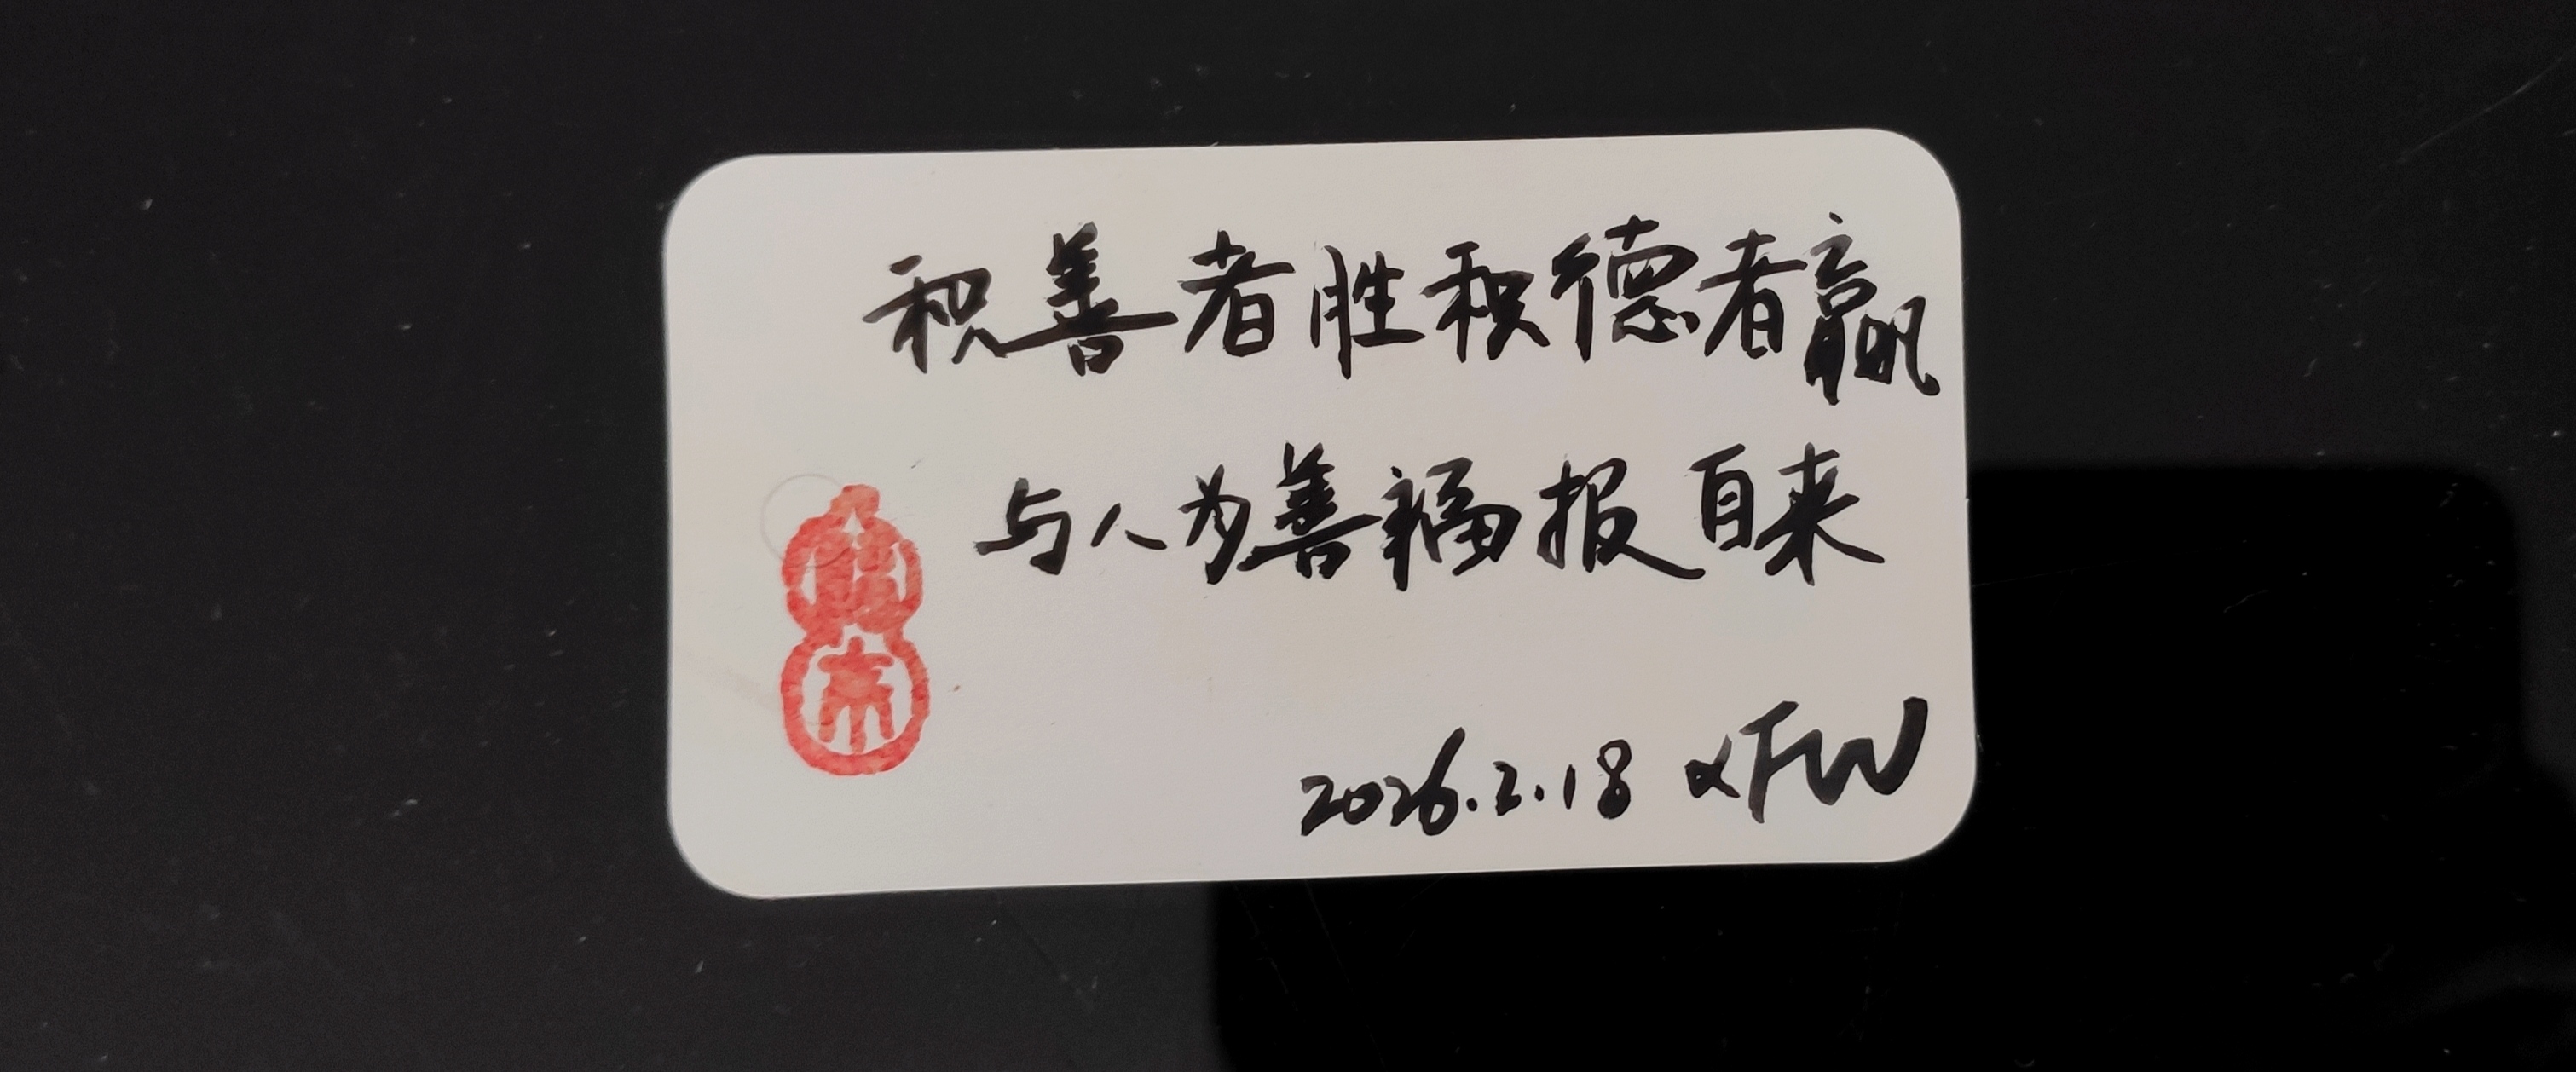 积善者胜积德者赢
与人为善福报自来
2026.2.18 XFW